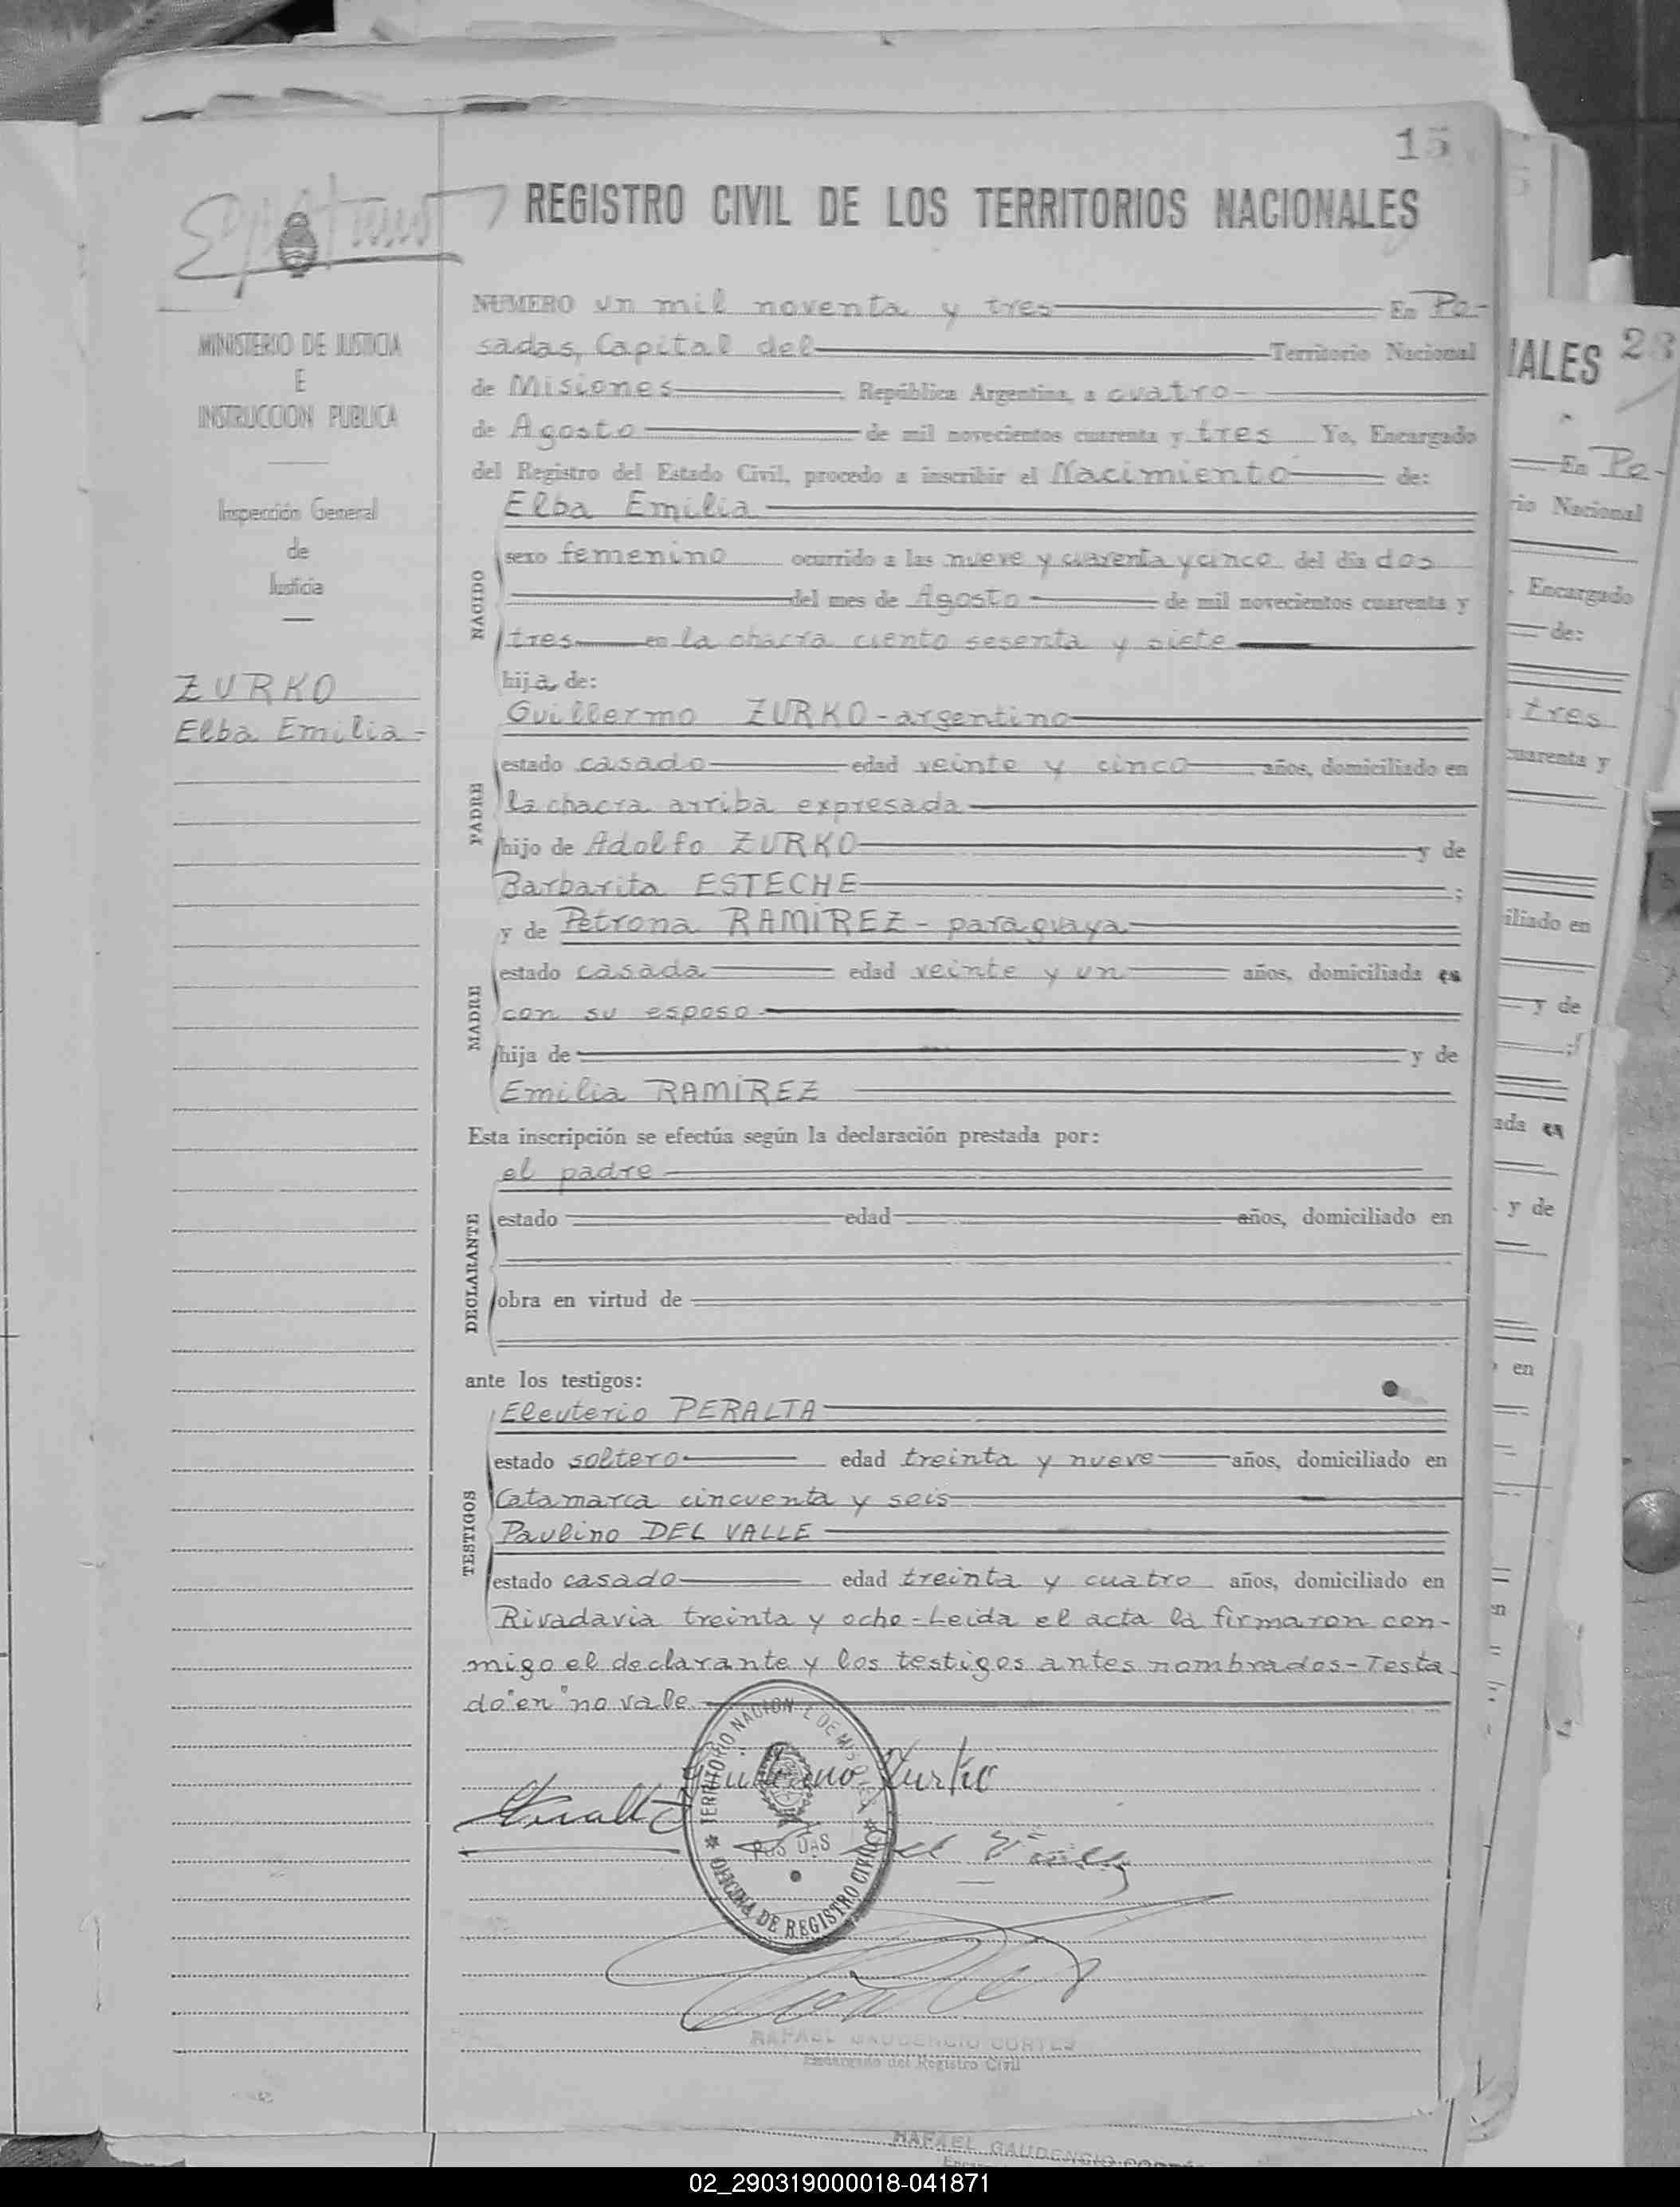 15
REGISTRO CIVIL DE LOS TERRITORIOS NACIONALES
NUMERO un mil noventa y tres En Po-
sadas, Capital del Territorio Nacional
de Misiones República Argentina, a cuatro
de Agosto de mil novecientos cuarenta y tres Yo, Encargado
del Registro del Estado Civil, procedo a inscribir el Nacimiento de:
MINISTERIO DE JUSTICIA
E
INSTRUCCION PUBLICA
Inspección General
de
Justicia
ZURKO
Elba Emilia-
NACIDO
Elba Emilia
sexo femenino ocurrido a las nueve y cuarenta y cinco del día dos
del mes de Agosto de mil novecientos cuarenta y
tres en la chacra ciento sesenta y siete
hija de:
PADRE
Guillermo ZURKO-argentino
estado casado edad veinte y cinco años, domiciliado en
la chacra arriba expresada
hijo de Adolfo ZURKO y de
Barbarita ESTECHE ;
MADRE
y de Petrona RAMIREZ - paraguaya
estado casada edad veinte y un años, domiciliada en
con su esposo
hija de y de
Emilia RAMIREZ
Esta inscripción se efectúa según la declaración prestada por:
DECLARANTE
el padre
estado edad años, domiciliado en
obra en virtud de
ante los testigos:
TESTIGOS
Eleuterio PERALTA
estado soltero edad treinta y nueve años, domiciliado en
Catamarca cincuenta y seis
Paulino DEL VALLE
estado casado edad treinta y cuatro años, domiciliado en
Rivadavia treinta y ocho-Leida el acta la firmaron con-
migo el declarante y los testigos antes nombrados-Testa
do "en" no vale
Guillermo Zurko
TERRITORIO NACIONAL DE MISIONES
POSADAS
OFICINA DE REGISTRO CIVIL
RAFAEL GAUDENCIO CORTES
Encargado del Registro Civil
IALES 23
En Po-
rio Nacional
Encargado
de:
tres
cuarenta y
iliado en
y de
ada en
y de
en
RAFAEL GAUDENCIO CORTES
02_290319000018-041871